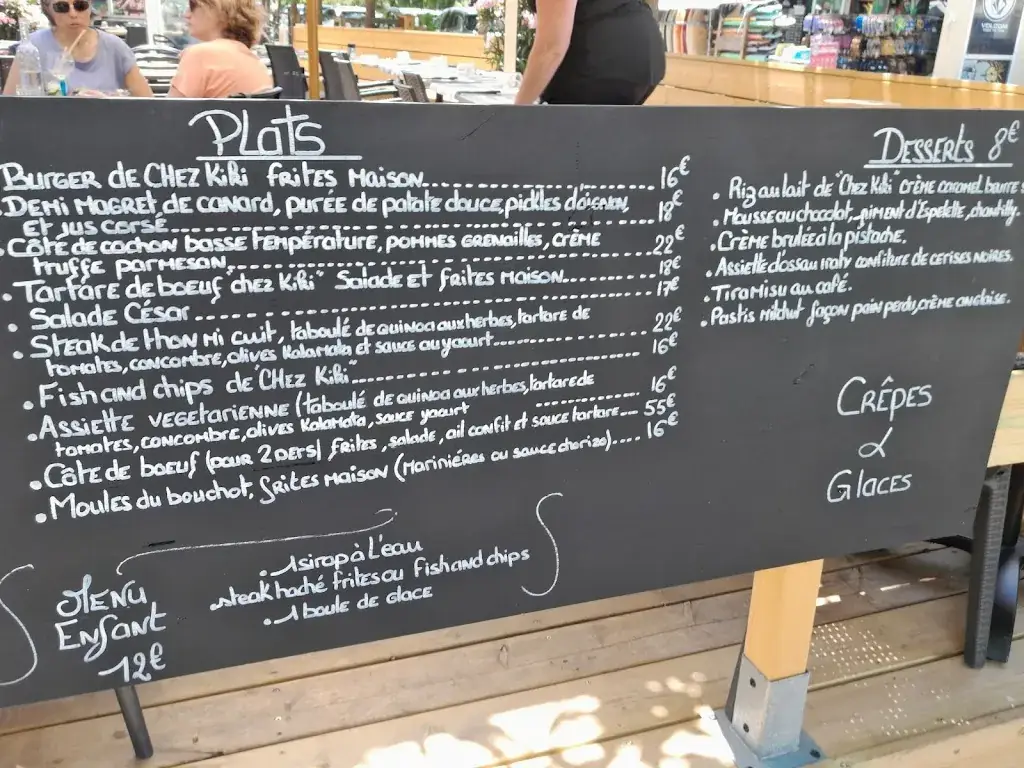 Plats
Burger de Chez Kiki frites maison........................ 16€
Demi magret de canard, purée de patate douce, pickles d'oignon,
et jus corsé........................ 18€
Côte de cochon basse température, pommes grenailles, crème
truffe parmesan........................ 22€
Tartare de boeuf chez Kiki" Salade et frites maison.......... 18€
Salade César........................ 17€
Steak de thon mi cuit, taboulé de quinoa aux herbes, tartare de
tomates, concombre, olives kalamata et sauce au yaourt........ 22€
Fish and chips de "Chez Kiki"........................ 16€
Assiette vegetarienne (taboulé de quinoa aux herbes, tartare de
tomates, concombre, olives kalamata, sauce yaourt ............ 16€
Côte de boeuf (pour 2 pers) frites, salade, ail confit et sauce tartare--- 55€
Moules du bouchot, frites maison (marinières ou sauce chorizo).... 16€
Menu
Enfant
12€
1 sirop à L'eau
steak haché frites ou fish and chips
1 boule de glace
Desserts 8€
Riz au lait de "Chez Kiki" crème caramel beurre s
Mousse au chocolat, piment d'Espelette, chantilly.
Crème brulée à la pistache.
Assiette d'ossau iraty confiture de cerises noires.
Tiramisu au café.
Pastis façon pain perdu, crème anglaise.
Crêpes
&
Glaces
VOLCOM